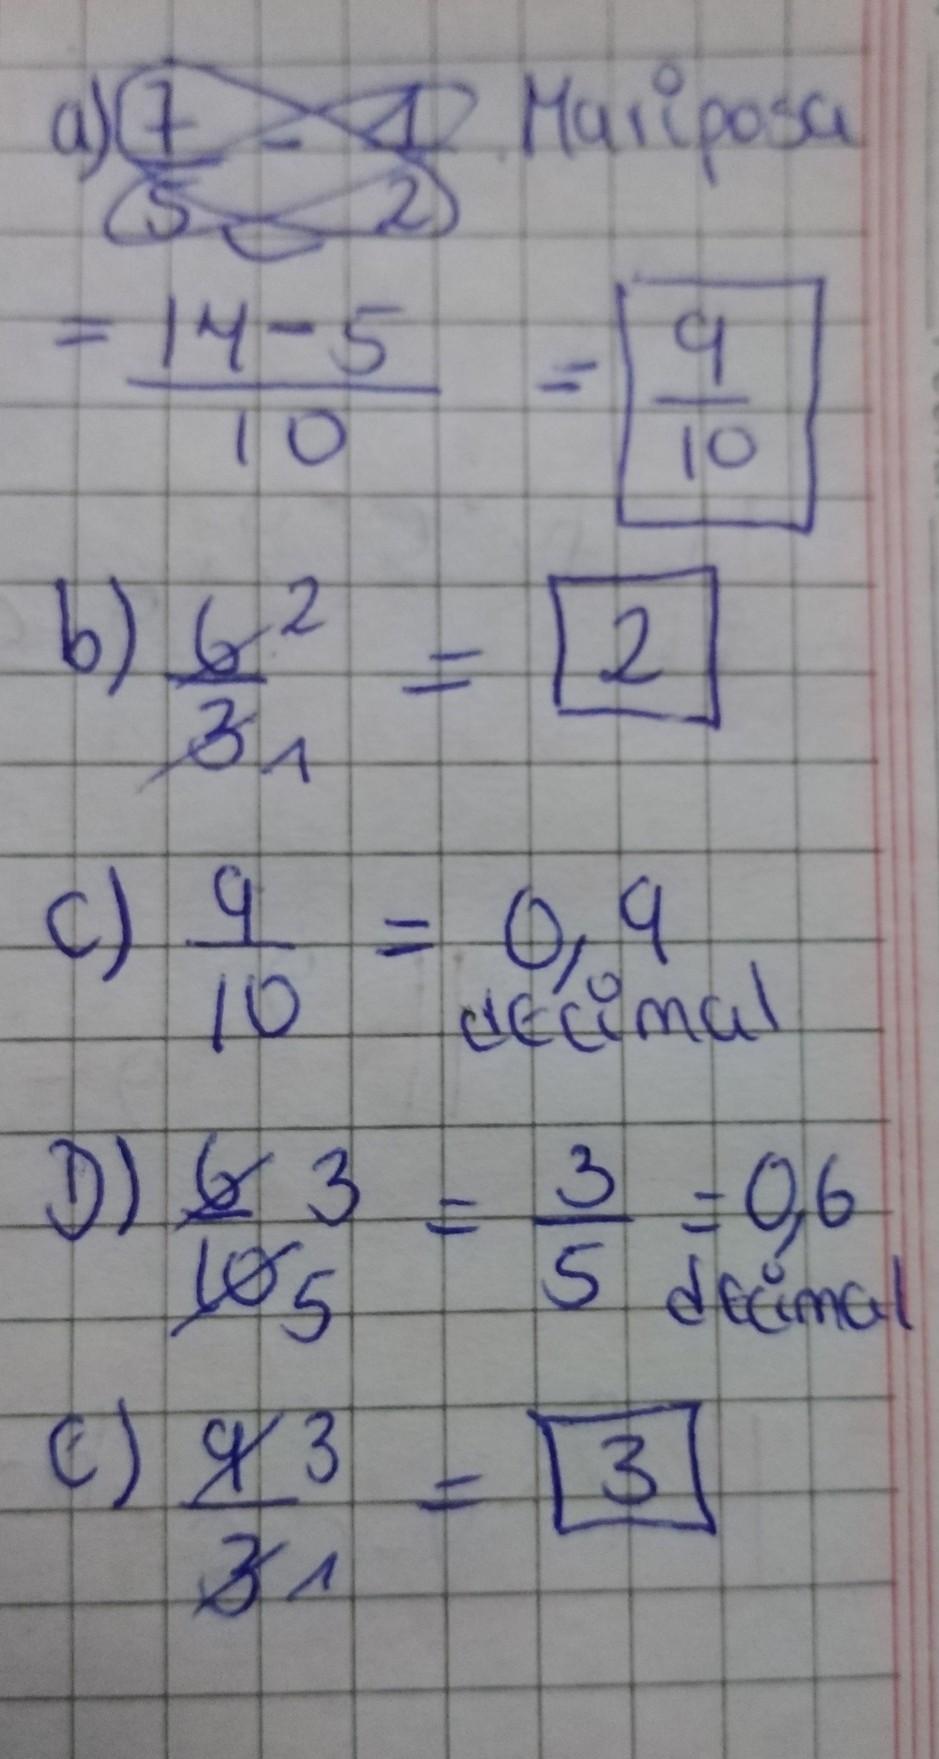 a) 7/5 - 1/2 Mariposa
= 14-5/10 = 9/10
b) 6/3 2/1 = 2
c) 9/10 = 0,9
decimal
D) 6/10 3/5 = 3/5 = 0,6
decimal
e) 9/3 3/1 = 3